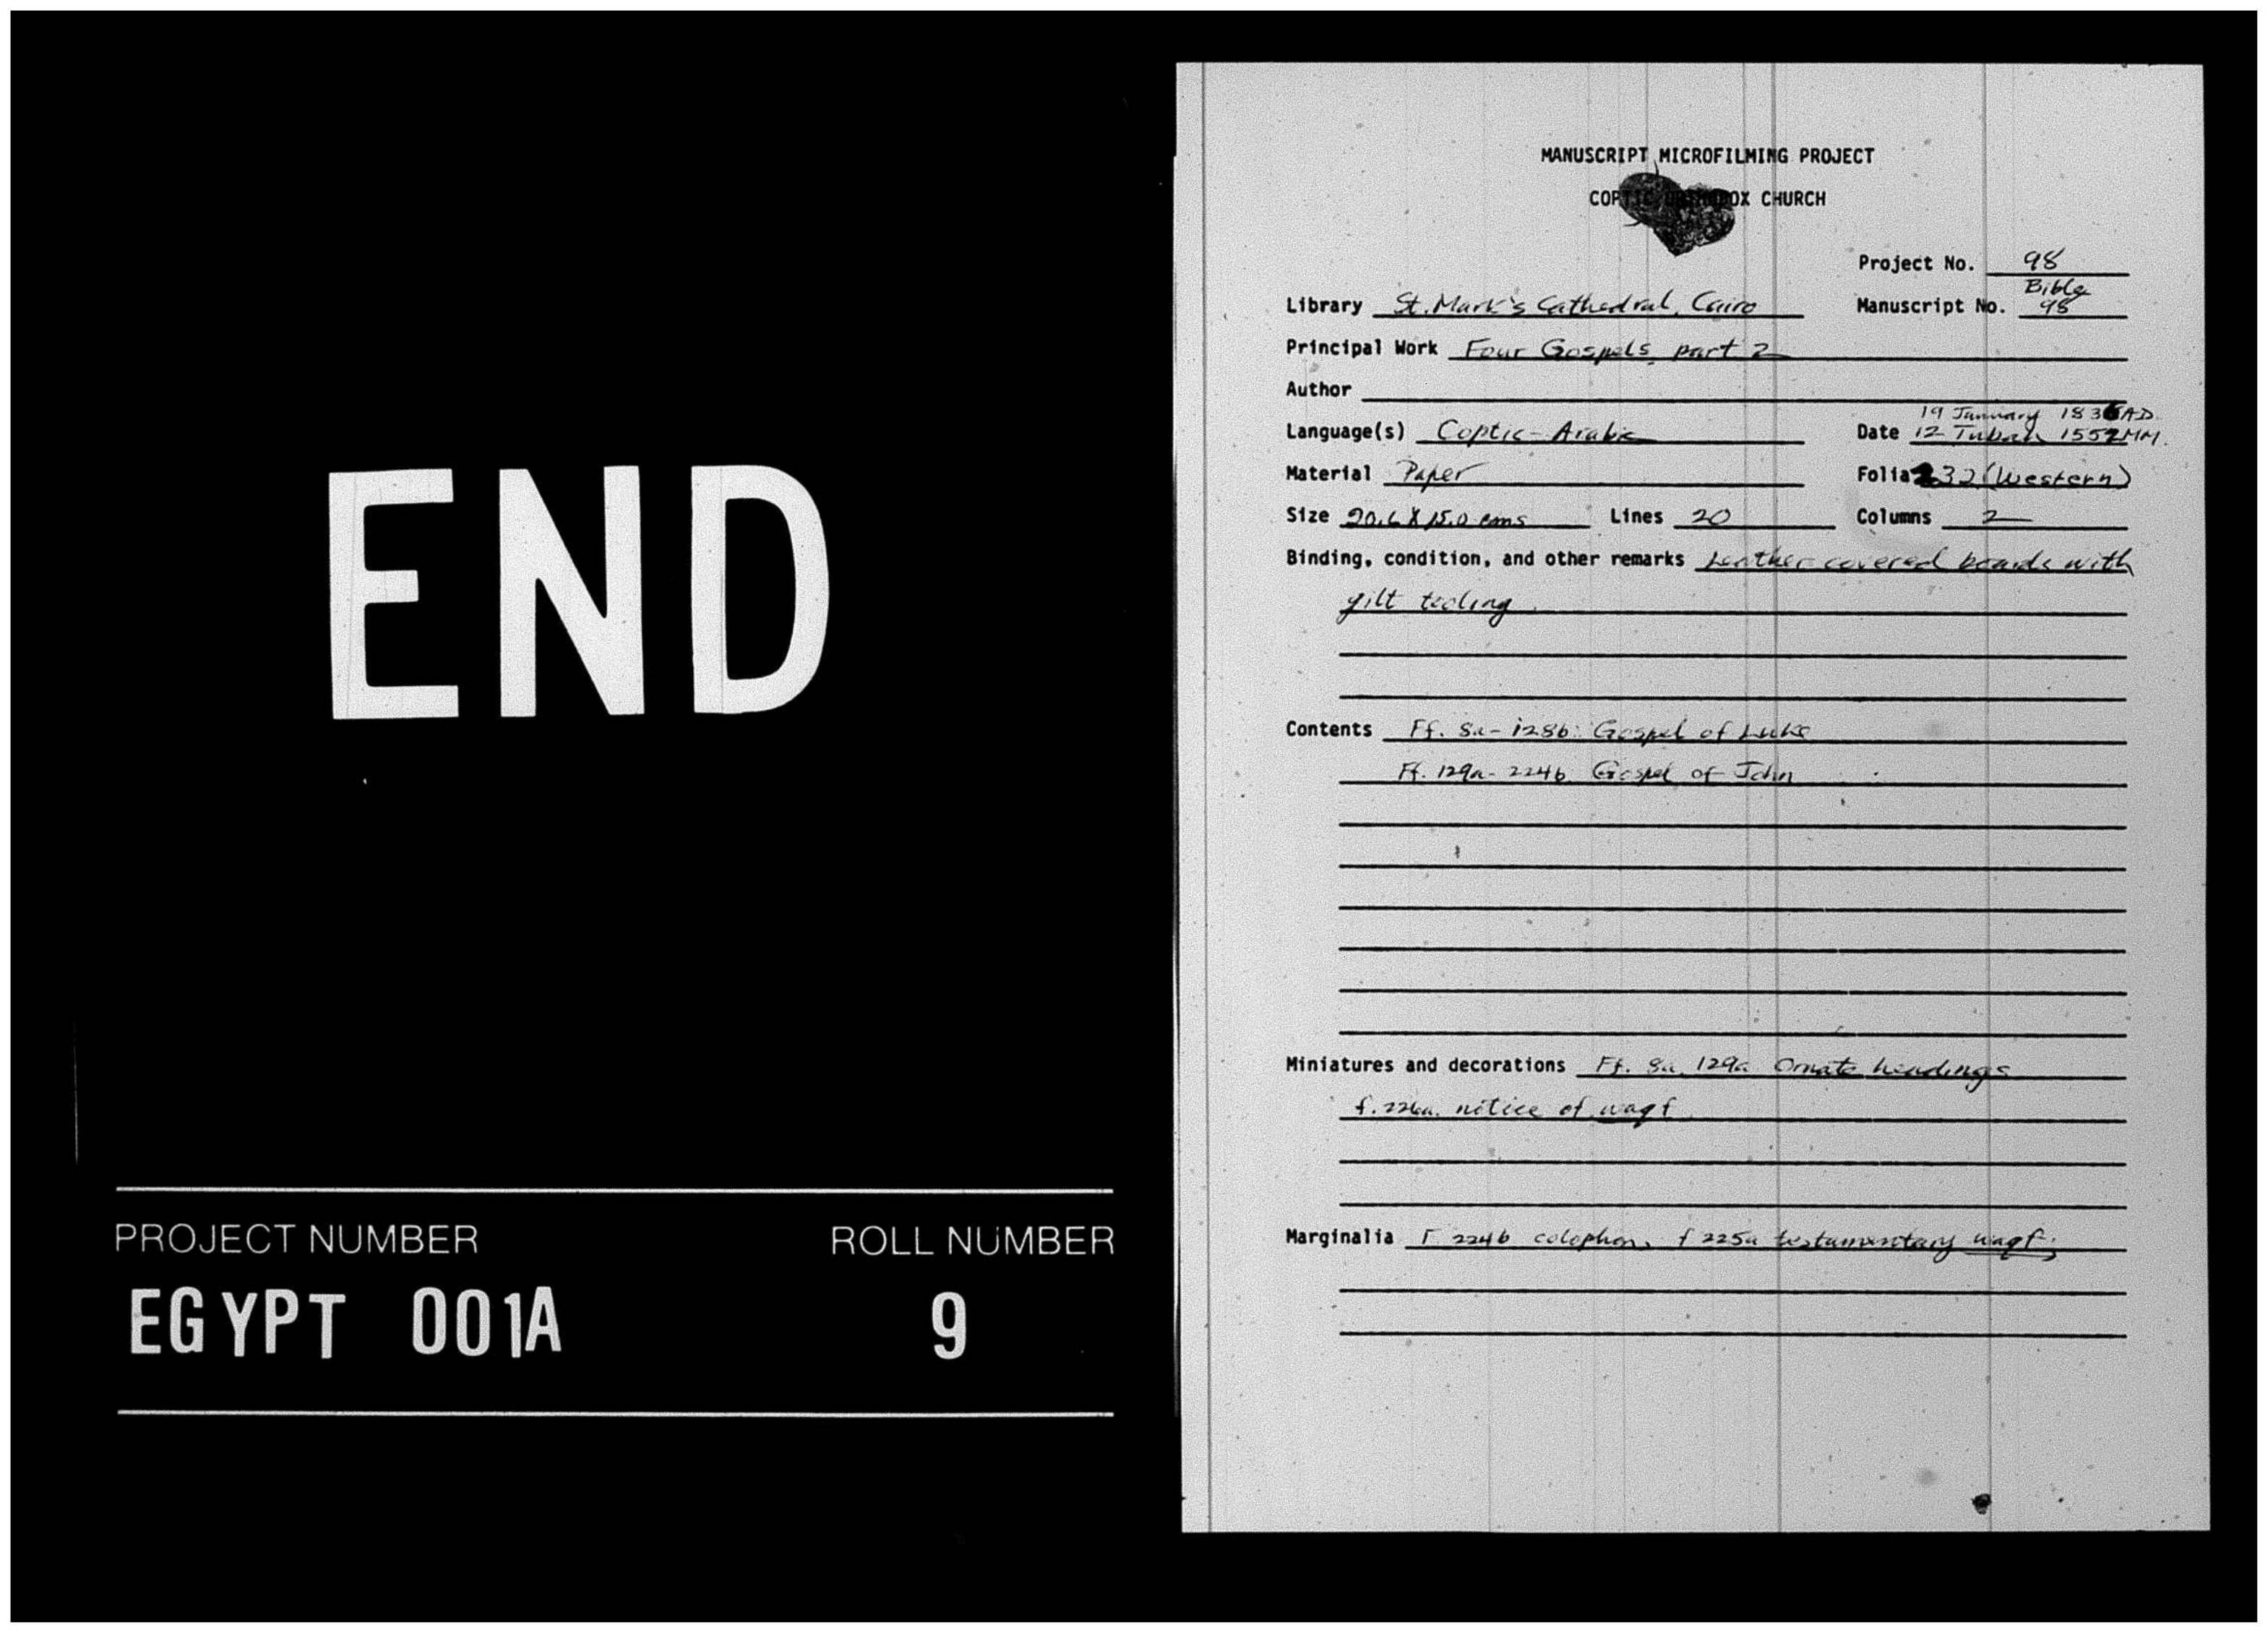 END
PROJECT NUMBER ROLL NUMBER
EGYPT 001A 9
MANUSCRIPT MICROFILMING PROJECT
COPTIC ORTHODOX CHURCH
Project No. 98
Library St. Mark's Cathedral, Cairo Manuscript No. Bible 98
Principal Work Four Gospels, part 2
Author
19 January 1836 AD.
Language(s) Coptic-Arabic Date 12 Tubah 1552 MM.
Material Paper Folia 232 (Western)
Size 20.6 X 15.0 cms Lines 20 Columns 2
Binding, condition, and other remarks Leather covered boards with
gilt tooling.
Contents Ff. 8a-128b: Gospel of Luke
Ff. 129a-224b Gospel of John
Miniatures and decorations Ff. 8a, 129a Ornate headings
f. 226a. notice of waqf.
Marginalia F 224b colophon, f 225a testamentary waqf;